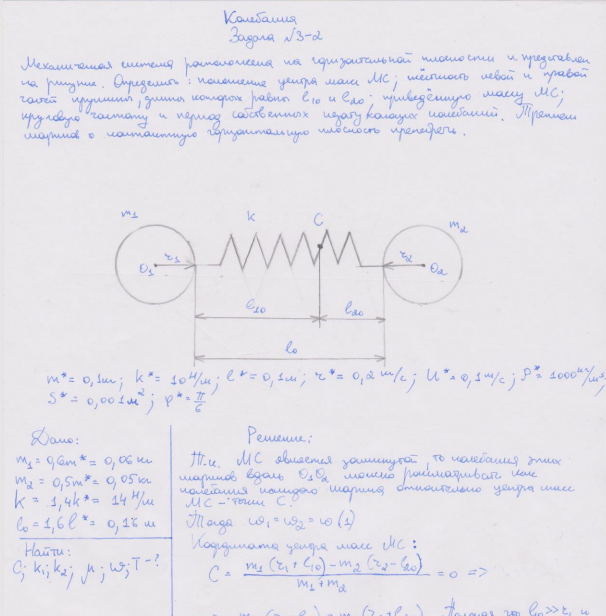 Колебания
Задача №3-2
Механическая система расположена на горизонтальной плоскости и представлена
на рисунке. Определить: положение центра масс МС; жёсткость левой и правой
частей пружины, длины которых равны l10 и l20; приведённую массу МС;
круговую частоту и период собственных незатухающих колебаний. Трением
шариков о контактную горизонтальную плоскость пренебречь.
m1 k C m2
O1 r1 r2 O2
l10 l20
l0
m* = 0,1кг; k* = 10 Н/м; l* = 0,1м; r* = 0,2 м/с; U* = 0,1 м/с; ρ* = 1000 кг/м³,
S* = 0,001м²; φ* = π/6
Дано:
m1 = 0,6m* = 0,06 кг
m2 = 0,5m* = 0,05 кг
k = 1,4k* = 14 Н/м
l0 = 1,6l* = 0,16 м
Найти:
C; k1; k2; μ; ω; T-?
Решение:
Т.к. МС является замкнутой, то колебания этих
шариков вдоль O1O2 можно рассматривать как
колебания каждого шарика относительно центра масс
МС - точки C.
Тогда ω1 = ω2 = ω (1)
Координата центра масс МС:
C = m1(r1 + l10) - m2(r2 - l20) / m1 + m2 = 0 =>